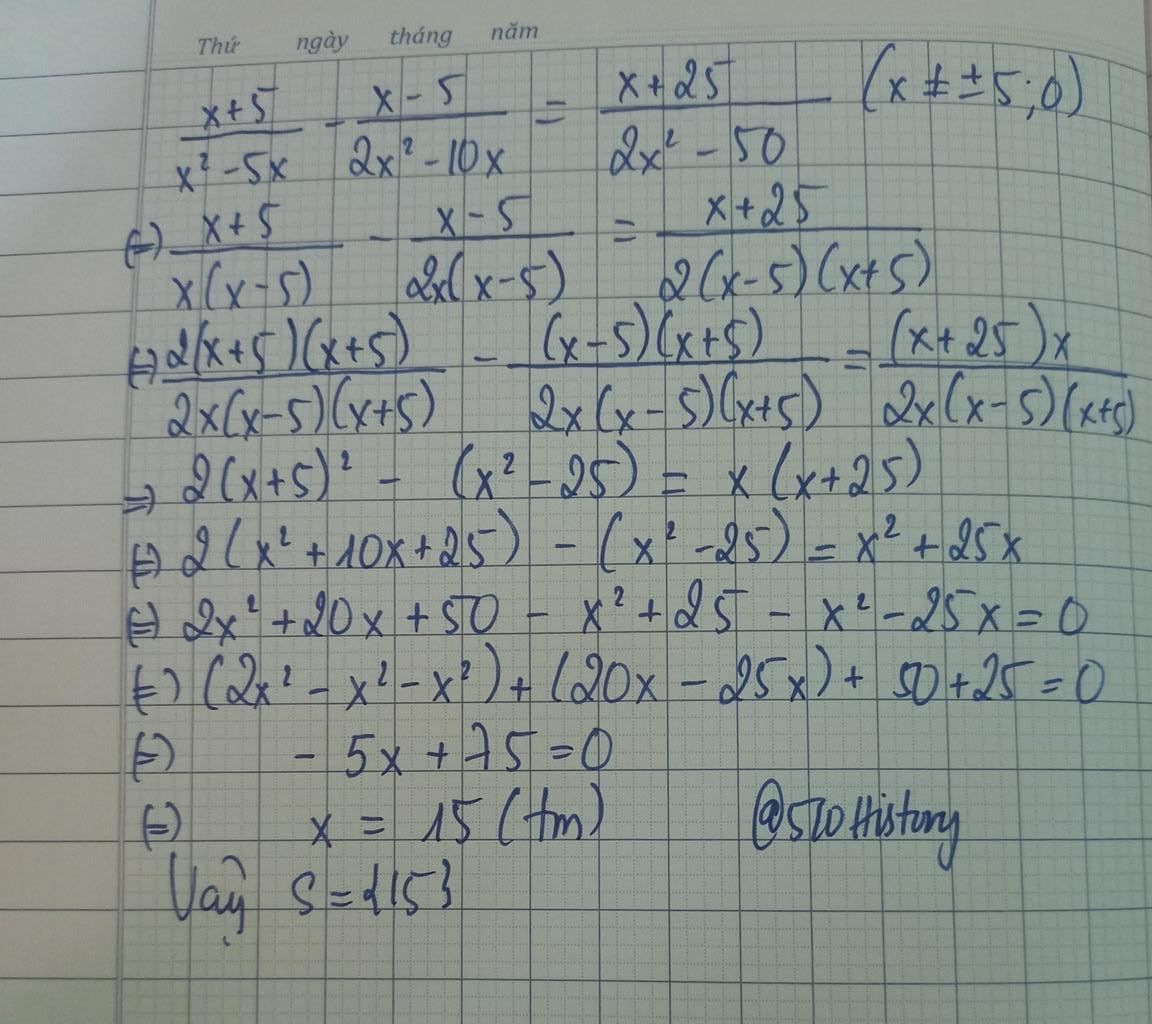 Thứ ngày tháng năm
(x+5)/(x² - 5x) - (x - 5)/(2x² - 10x) = (x + 25)/(2x² - 50) (x ≠ ±5; 0)
⇔ (x + 5)/(x(x - 5)) - (x - 5)/(2x(x - 5)) = (x + 25)/(2(x - 5)(x + 5))
⇔ (2(x + 5)(x + 5))/(2x(x - 5)(x + 5)) - ((x - 5)(x + 5))/(2x(x - 5)(x + 5)) = ((x + 25)x)/(2x(x - 5)(x + 5))
⇒ 2(x + 5)² - (x² - 25) = x(x + 25)
⇔ 2(x² + 10x + 25) - (x² - 25) = x² + 25x
⇔ 2x² + 20x + 50 - x² + 25 - x² - 25x = 0
⇔ (2x² - x² - x²) + (20x - 25x) + 50 + 25 = 0
⇔ - 5x + 75 = 0
⇔ x = 15 (tm) @520History
Vậy S = {15}